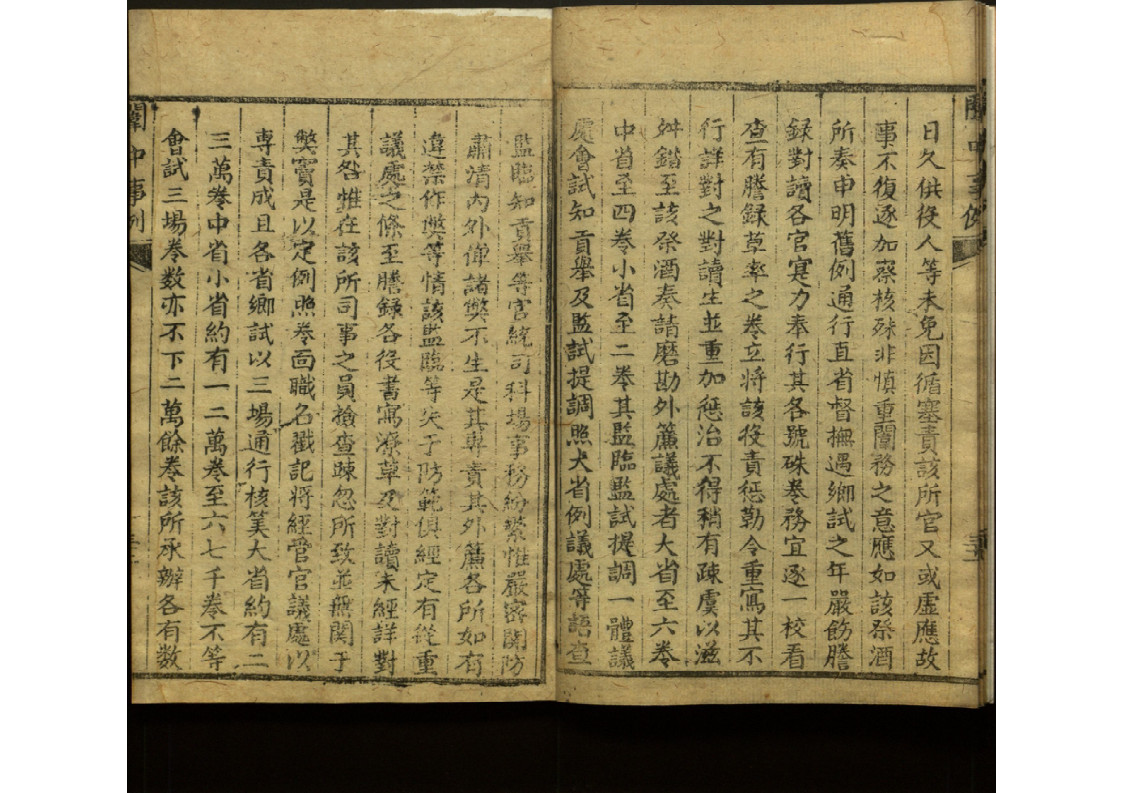 日久供役人等未免因循塞責該所官又或虛應故
事不復逐加察核殊非慎重闈務之意應如該祭酒
所奏申明舊例通行直省督撫遇鄉試之年嚴飭謄
録對讀各官寔力奉行其各號硃卷務宜逐一校看
查有謄録草率之卷立將該役責懲勒令重寫其不
行詳對之對讀生並重加懲治不得稍有疎虞以滋
舛錯至該祭酒奏請磨勘外簾議處者大省至六卷
中省至四卷小省至二卷其監臨監試提調一體議
處會試知貢舉及監試提調照大省例議處等語查
監臨知貢舉等官統司科場事務紛繁惟嚴密関防
肅清内外俾諸獘不生是其專責其外簾各所如有
違禁作獘等情該監臨等失于防範俱經定有從重
議處之條至謄録各役書寫潦草及對讀未經詳對
其咎雖在該所司事之員撿查疎忽所致並無関于
獘竇是以定例照卷面職名戳記將經管官議處以
専責成且各省鄉試以三場通行核筭大省約有二
三萬卷中省小省約有一二萬卷至六七千卷不等
會試三場卷數亦不下二萬餘卷該所承辦各有數
闈中事例